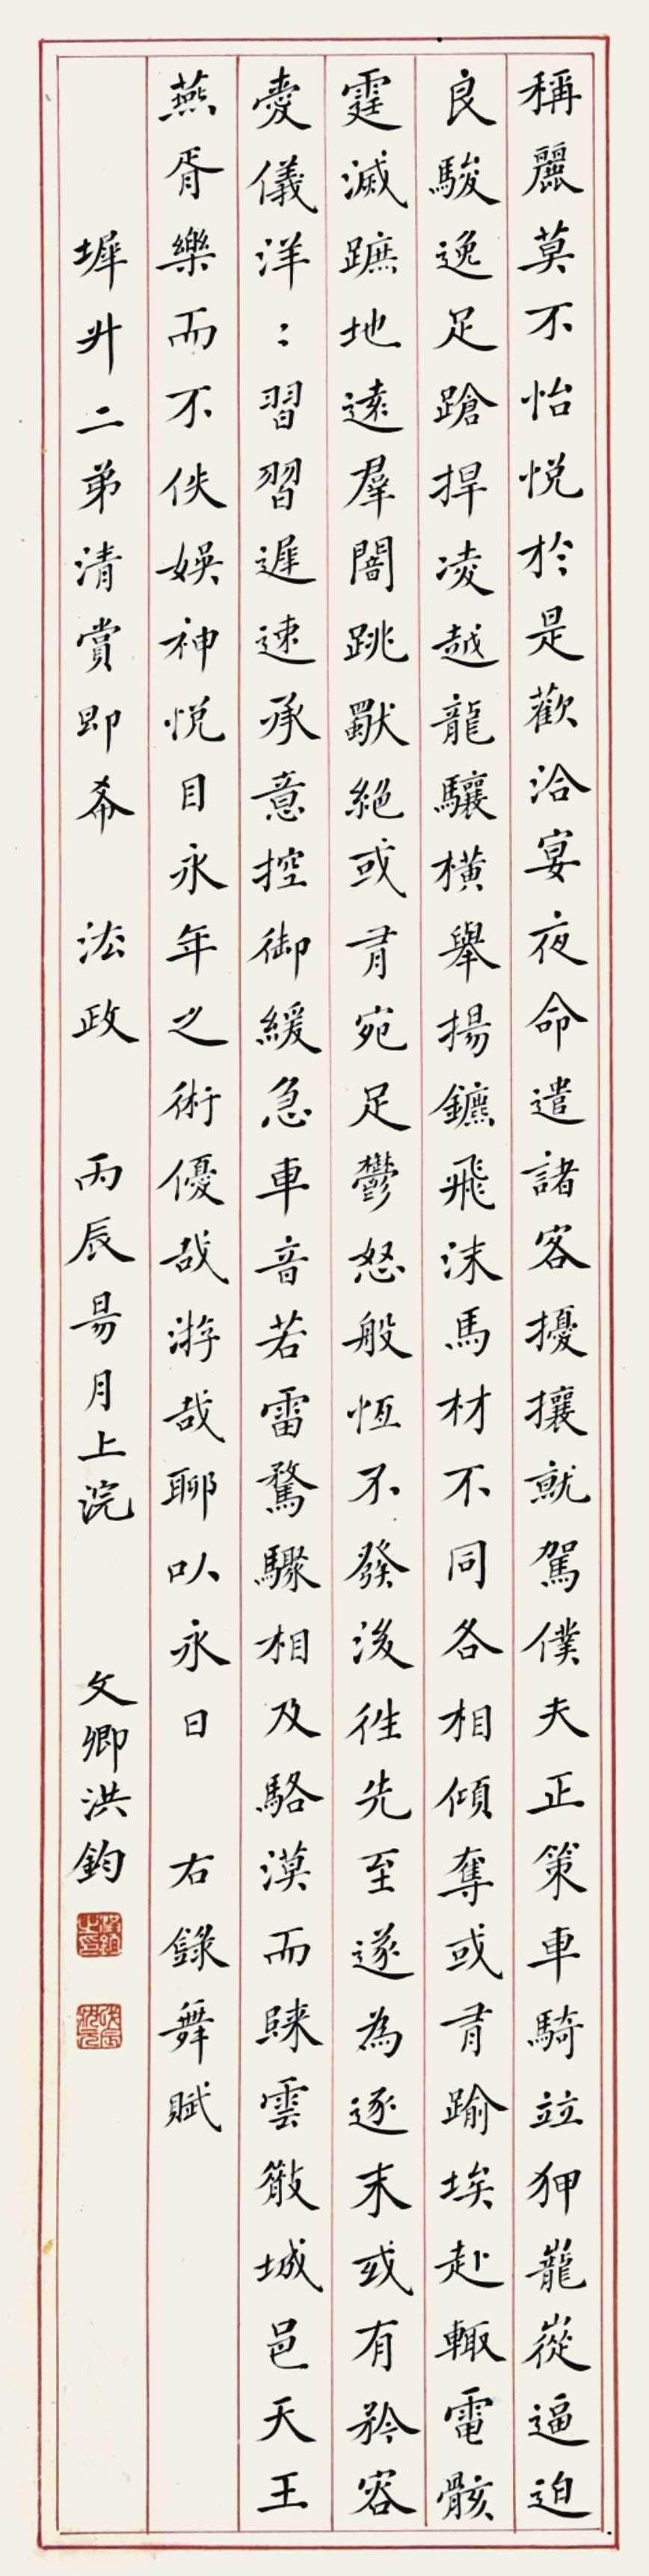 稱麗莫不怡悅於是歡洽宴夜命遣諸客擾攘就駕僕夫正策車騎竝狎巃嵸逼迫
良駿逸足蹌捍凌越龍驤橫舉揚鑣飛沫馬材不同各相傾奪或有踰埃赴轍電駭
霆滅蹠地遠羣闇跳獸絕或有宛足鬱怒般恆不發後往先至遂為逐末或有矜容
愛儀洋:習習遲速承意控御緩急車音若雷騖驟相及駱漠而歸雲散城邑天王
燕胥樂而不佚娛神悅目永年之術優哉游哉聊以永日 右錄舞賦
墀升二弟清賞即希 法政 丙辰昜月上浣 文卿洪鈞